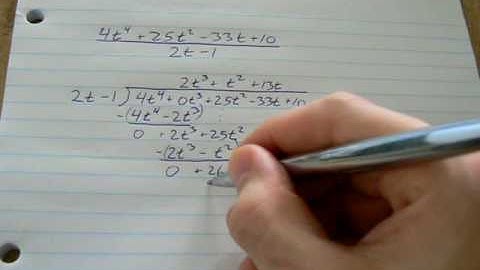 4t⁴ + 25t² - 33t + 10
2t - 1
2t³ + t² + 13t
2t - 1 ) 4t⁴ + 0t³ + 25t² - 33t + 10
-(4t⁴ - 2t³)
0 + 2t³ + 25t²
-(2t³ - t²)
0 + 26